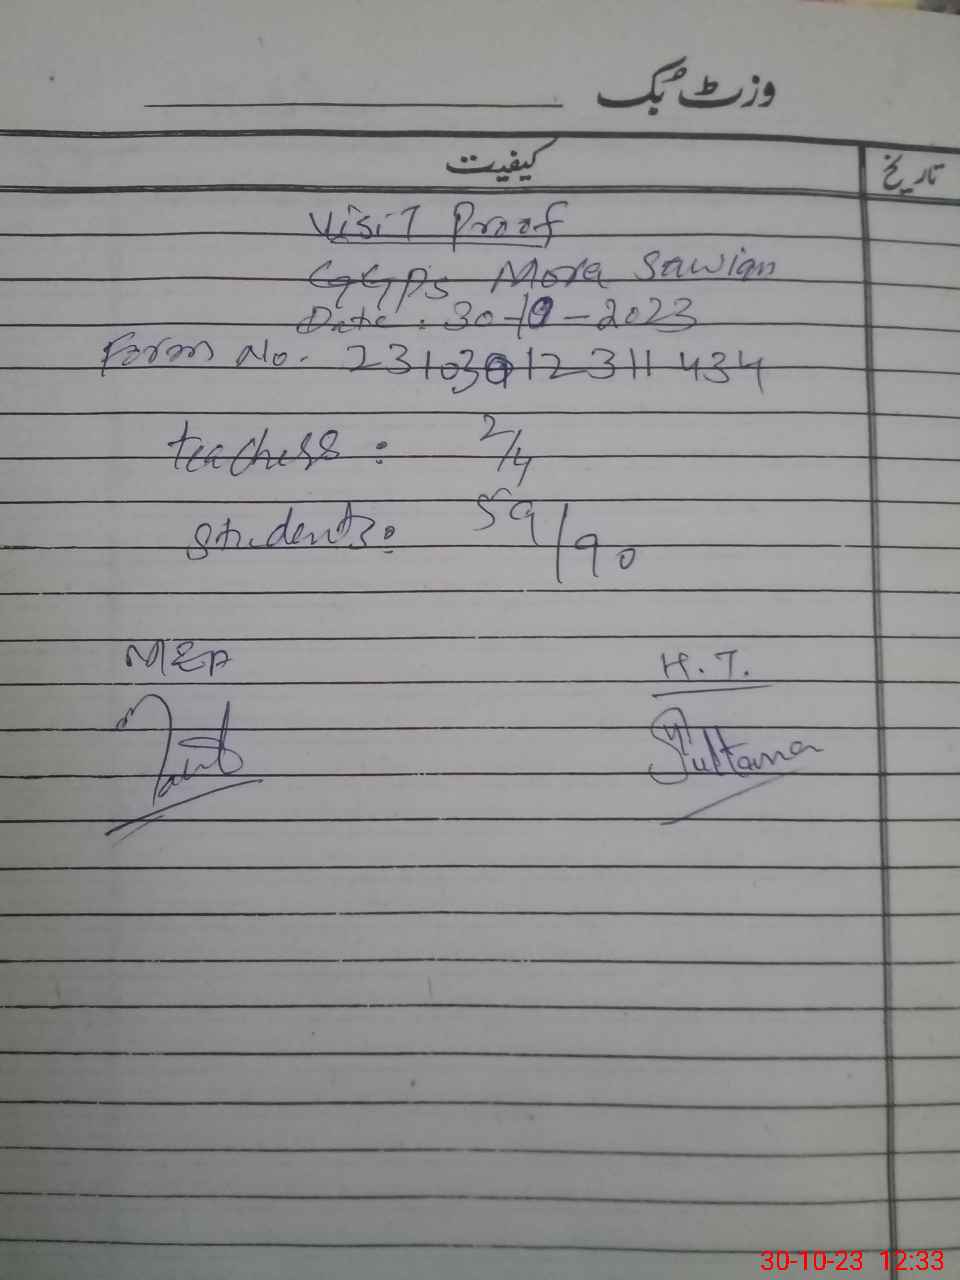 وزٹ بک
کیفیت
تاریخ
Visit Proof
GGPS Mora Sawian
Date: 30-10-2023
Form No. 23103012311434
teachers: 2/4
students: 59/90
MEA
H.T.
Sultana
30-10-23 12:33